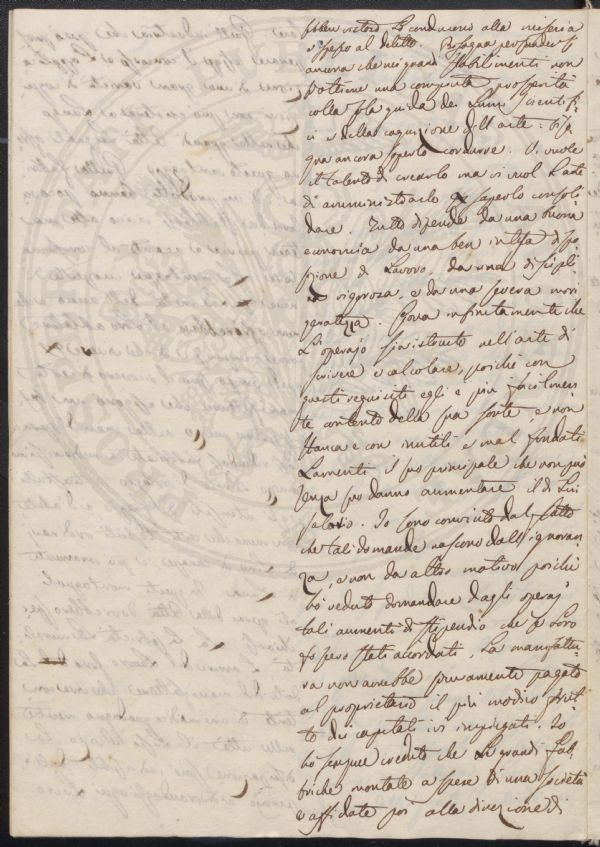 ebben vistosa Lo conducono alla miseria
e spesso al delitto. Bisogna persuadersi
ancora che nei grandi stabilimenti non
s'ottiene una compiuta prosperità
colla sola guida dei Lumi scientifi-
ci e della cognizione dell'arte. Biso-
gna ancora saperlo condurre. Vi vuole
il talento di crearlo ma vi vuol L'arte
di amministrarlo saperlo consoli
dare. Tutto dipende da una buona
economia da una ben intesa dispo
sizione di Lavoro, da una discipli
na vigorosa, e da una severa mori
geratezza. Giova infinitamente che
L'operajo sia istruito nell'arte di
scrivere e calcolare, poiché con
questi requisiti egli è più facilmen-
te contento della sua sorte, e non
stanca con inutili e mal fondati
Lamenti il suo principale che non può
senza suo danno aumentare il di Lui
salario. Io sono convinto dal fatto
che tali domande nascono dall'ignoran
za, e non da altro motivo poiché
hò veduto domandare dagli operaj
tali aumenti di stipendio che se Loro
fossero stati acordati, La manifattu-
ra non avrebbe puramente pagato
al proprietario il più modico frut
to dei capitali ivi impiegati. Io
hò sempre creduto che Le grandi fab
briche montate a spese di una società
e affidate poi alla direzione di